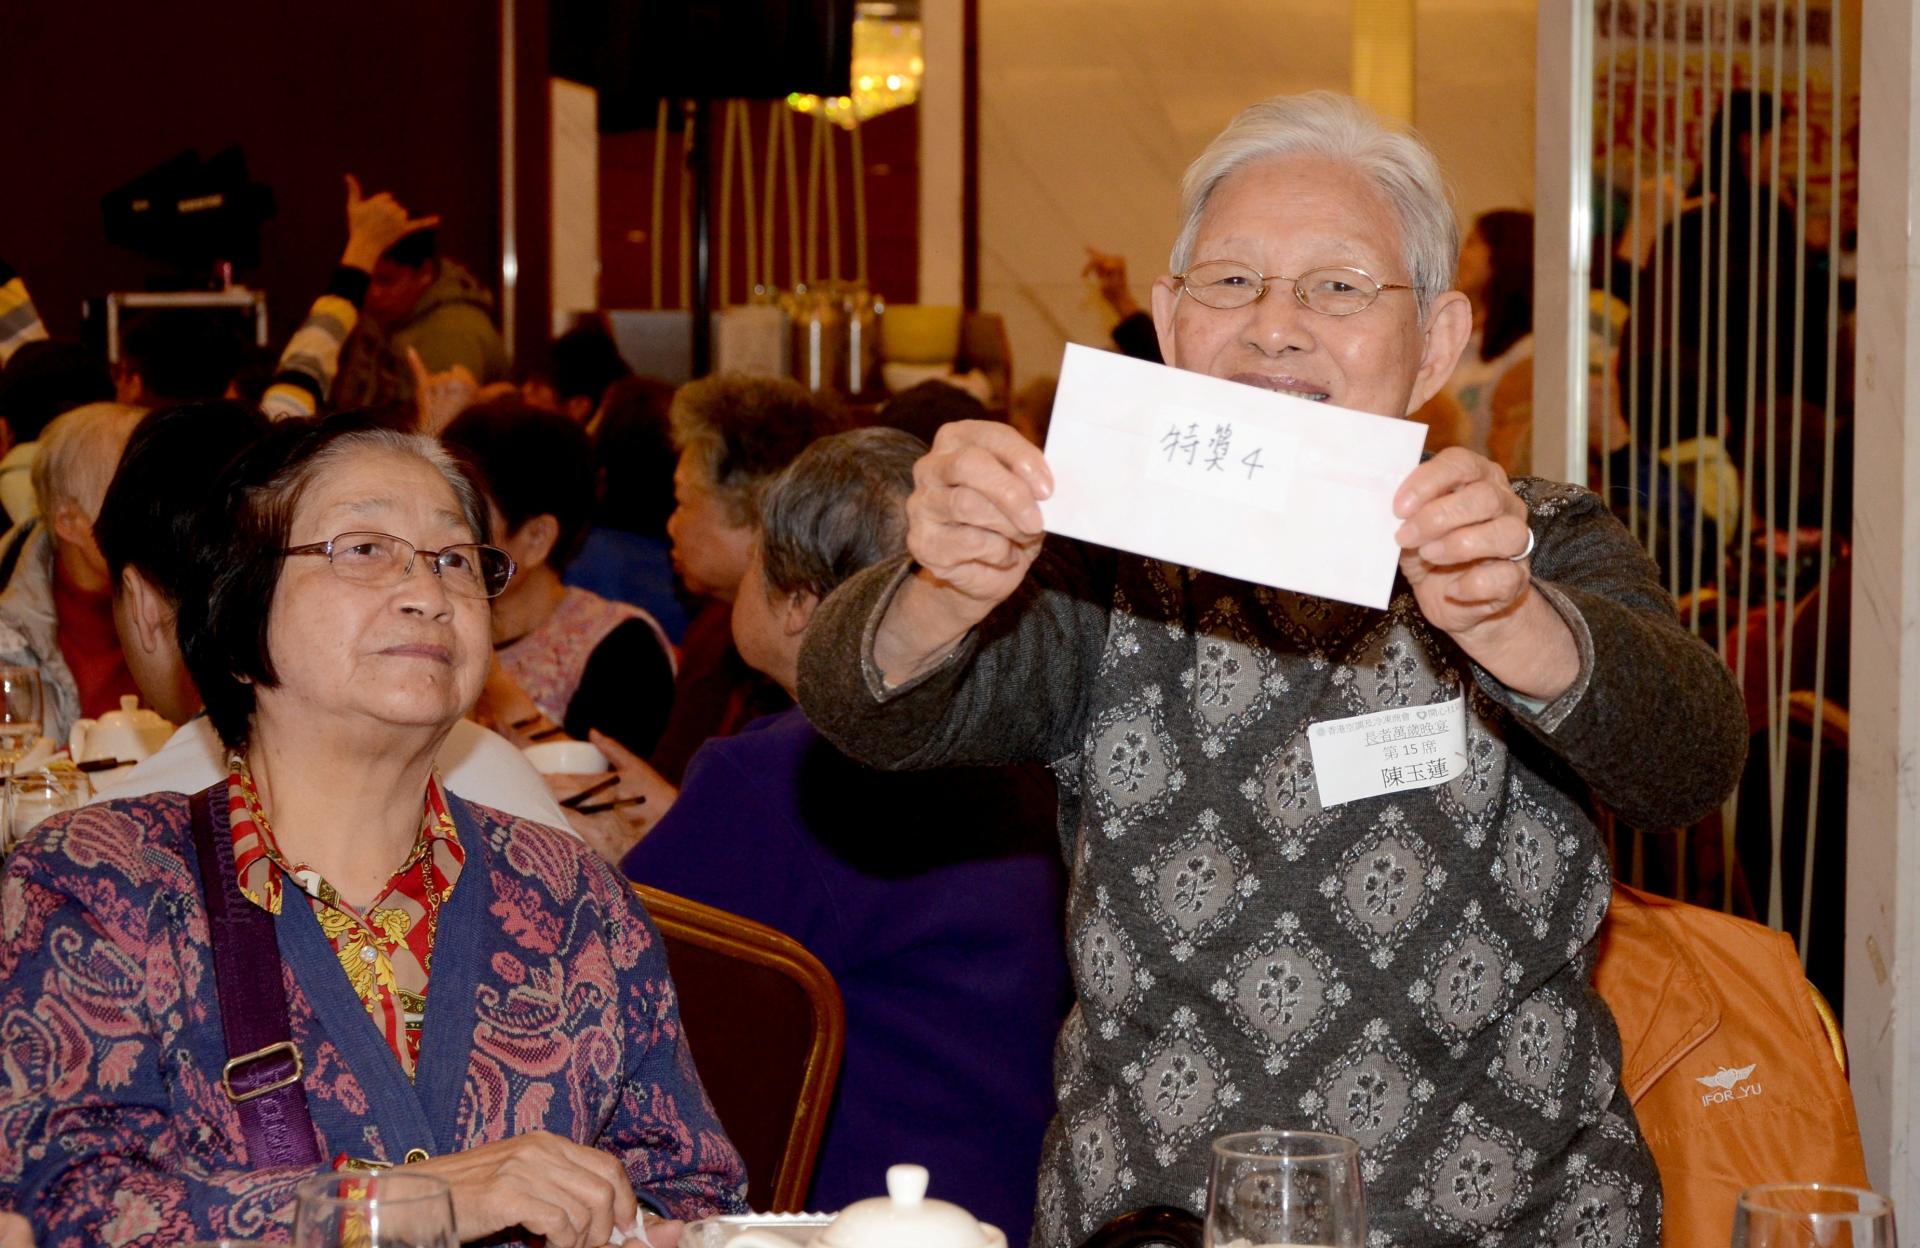 特獎 4
香港空調及冷凍商會 開心社
長者萬歲晚宴
第 15 席
陳玉蓮
IFOR_YU